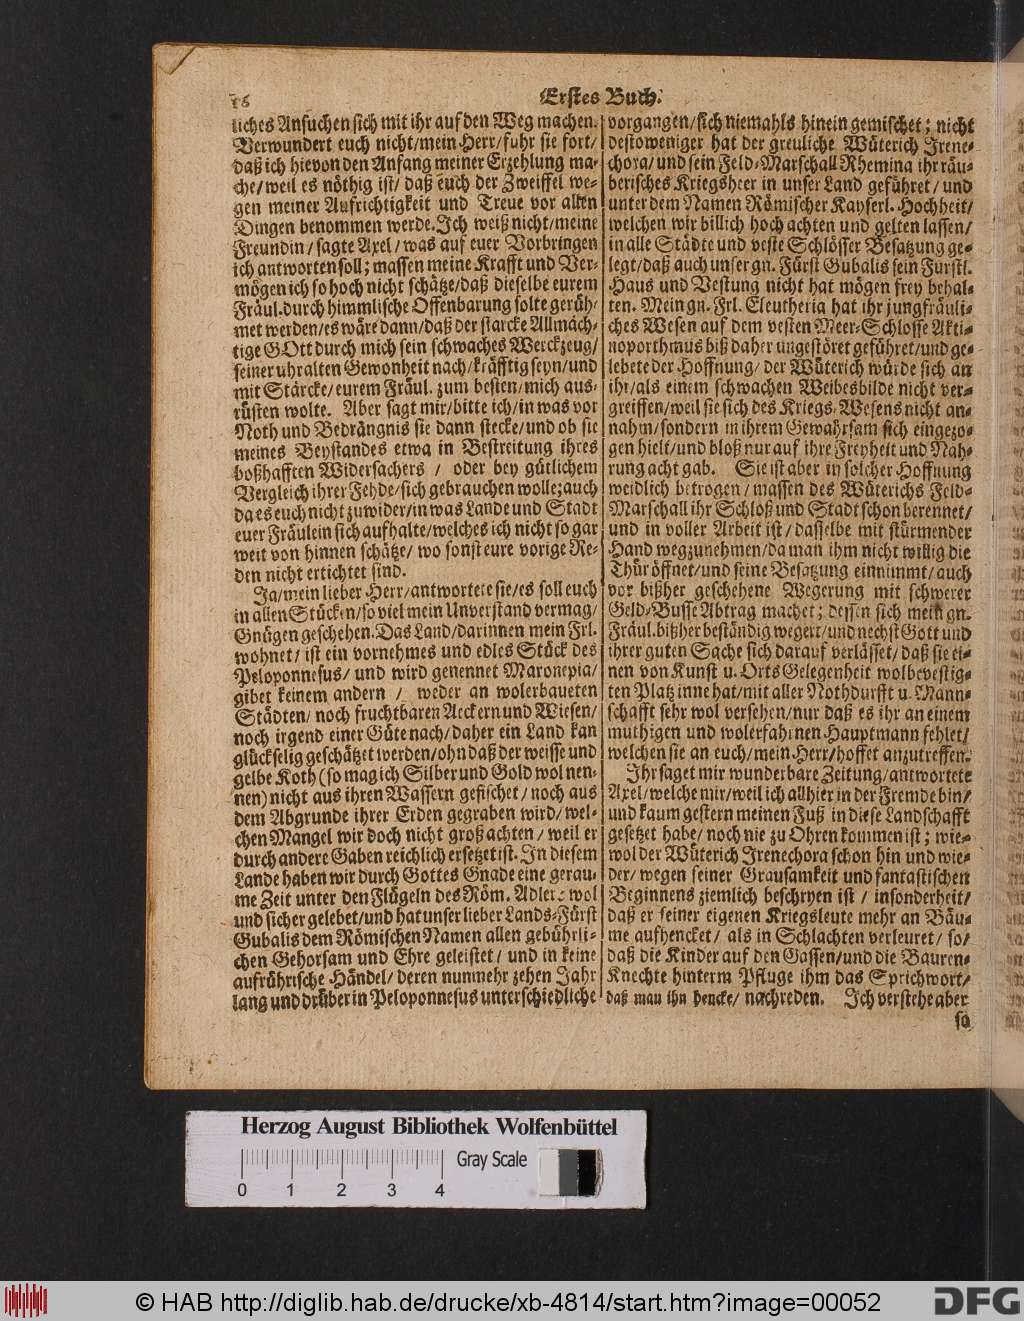 16
Erstes Buch.
liches Ansuchen sich mit ihr auf den Weg machen.
Verwundert euch nicht/mein Herr/fuhr sie fort/
daß ich hievon den Anfang meiner Erzehlung ma-
che/weil es nöthig ist/ daß euch der Zweiffel we-
gen meiner Aufrichtigkeit und Treue vor allen
Dingen benommen werde. Ich weiß nicht/meine
Freundin/sagte Axel/was auf euer Vorbringen
ich antworten soll; massen meine Krafft und Ver-
mögen ich so hoch nicht schätze/daß dieselbe eurem
Fräul. durch himmlische Offenbarung solte gerüh-
met werden/es wäre dann/daß der starcke Allmäch-
tige GOtt durch mich sein schwaches Werckzeug/
seiner uhralten Gewonheit nach/kräfftig seyn/und
mit Stärcke/eurem Fräul. zum besten/mich aus-
rüsten wolte. Aber sagt mir/bitte ich/in was vor
Noth und Bedrängnis sie dann stecke/und ob sie
meines Beystandes etwa in Bestreitung ihres
boßhafften Widersachers / oder bey gütlichem
Vergleich ihrer Fehde/sich gebrauchen wolle; auch
da es euch nicht zuwider/in was Lande und Stadt
euer Fräulein sich aufhalte/welches ich nicht so gar
weit von hinnen schätze/ wo sonst eure vorige Re-
den nicht ertichtet sind.
Ja/mein lieber Herr/antwortete sie/es soll euch
in allen Stücken/so viel mein Unverstand vermag/
Gnügen geschehen. Das Land/darinnen mein Frl.
wohnet/ ist ein vornehmes und edles Stück des
Peloponnesus/ und wird genennet Maronepia/
gibet keinem andern / weder an wolerbaueten
Städten/ noch fruchtbaren Aeckern und Wiesen/
noch irgend einer Güte nach/ daher ein Land kan
glückselig geschätzet werden/ohn daß der weisse und
gelbe Koth (so mag ich Silber und Gold wol nen-
nen) nicht aus ihren Wassern gefischet/noch aus
dem Abgrunde ihrer Erden gegraben wird/wel-
chen Mangel wir doch nicht groß achten/ weil er
durch andere Gaben reichlich ersetzet ist. In diesem
Lande haben wir durch Gottes Gnade eine gerau-
me Zeit unter den Flügeln des Röm. Adlers wol
und sicher gelebet/und hat unser lieber Lands-Fürst
Gubalis dem Römischen Namen allen gebührli-
chen Gehorsam und Ehre geleistet/ und in keine
aufrührische Händel/ deren nunmehr zehen Jahr
lang und drüber in Peloponnesus unterschiedliche
vorgangen/sich niemahls hinein gemischet; nicht
destoweniger hat der greuliche Wüterich Irene-
chora/und sein Feld-Marschall Rhemina ihr räu-
berisches Kriegsheer in unser Land geführet/ und
unter dem Namen Römischer Kayserl. Hochheit/
welchen wir billich hoch achten und gelten lassen/
in alle Städte und veste Schlösser Besatzung ge-
legt/daß auch unser gn. Fürst Gubalis sein Fürstl.
Haus und Vestung nicht hat mögen frey behal-
ten. Mein gn. Frl. Eleutheria hat ihr jungfräuli-
ches Wesen auf dem vesten Meer-Schlosse Akti-
noporthmus biß daher ungestöret geführet/und ge-
lebete der Hoffnung/ der Wüterich würde sich an
ihr/als einem schwachen Weibesbilde nicht ver-
greiffen/weil sie sich des Kriegs-Wesens nicht an-
nahm/sondern in ihrem Gewahrsam sich eingezo-
gen hielt/und bloß nur auf ihre Freyheit und Nah-
rung acht gab. Sie ist aber in solcher Hoffnung
weidlich betrogen/massen des Wüterichs Feld-
Marschall ihr Schloß und Stadt schon berennet/
und in voller Arbeit ist/ dasselbe mit stürmender
Hand wegzunehmen/da man ihm nicht willig die
Thür öffnet/und seine Besatzung einnimmt/auch
vor bißher geschehene Wegerung mit schwerer
Geld-Busse Abtrag machet; dessen sich mein gn.
Fräul. bißher beständig wegert/und nechst Gott und
ihrer guten Sache sich darauf verlässet/daß sie ei-
nen von Kunst u. Orts Gelegenheit wolbevestig-
ten Platz inne hat/mit aller Nothdurfft u. Mann-
schafft sehr wol versehen/nur daß es ihr an einem
muthigen und wolerfahrnen Hauptmann fehlet/
welchen sie an euch/mein Herr/hoffet anzutreffen.
Ihr saget mir wunderbare Zeitung/antwortete
Axel/welche mir/weil ich allhier in der Fremde bin/
und kaum gestern meinen Fuß in diese Landschafft
gesetzet habe/ noch nie zu Ohren kommen ist; wie-
wol der Wüterich Irenechora schon hin und wie-
der/ wegen seiner Grausamkeit und fantastischen
Beginnens ziemlich beschryen ist / insonderheit/
daß er seiner eigenen Kriegsleute mehr an Bäu-
me aufhencket/ als in Schlachten verleuret/ so/
daß die Kinder auf den Gassen/und die Bauren-
Knechte hinterm Pfluge ihm das Sprichwort/
daß man ihn hencke/ nachreden. Ich verstehe aber
so
Herzog August Bibliothek Wolfenbüttel
Gray Scale
0 1 2 3 4
© HAB http://diglib.hab.de/drucke/xb-4814/start.htm?image=00052
DFG